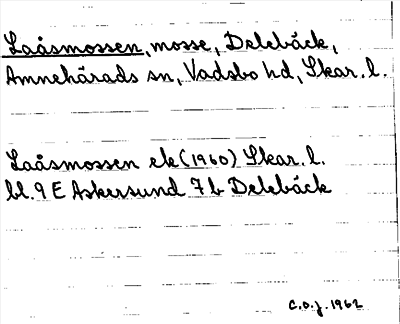 Laåsmossen, mosse, Delebäck,
Amnehärads sn, Vadsbo hd, Skar. l.
Laåsmossen ek (1960) Skar. l.
bl. 9 E Askersund 7 b Delebäck
C.O.J. 1962